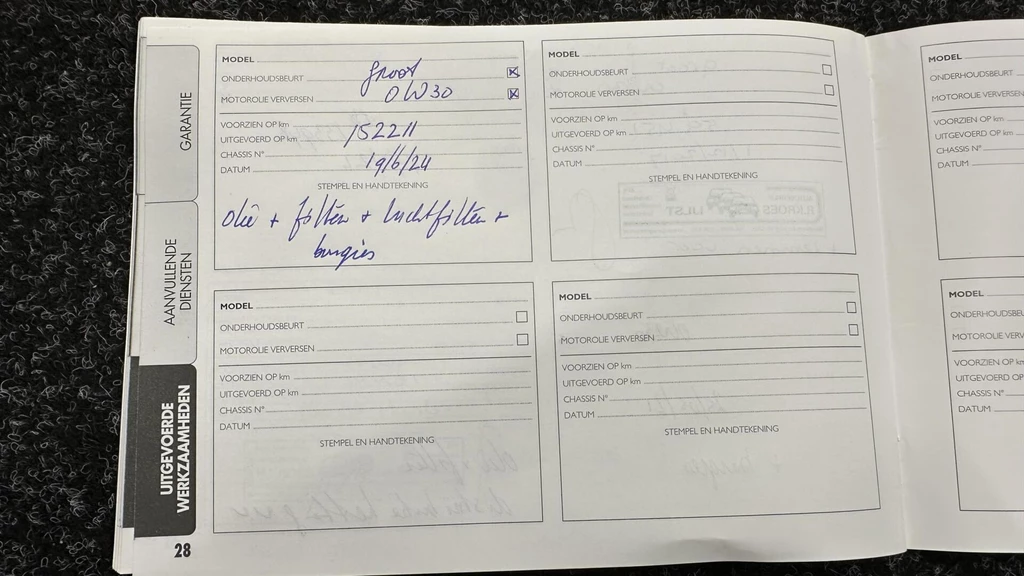 GARANTIE
AANVULLENDE
DIENSTEN
UITGEVOERDE
WERKZAAMHEDEN
28
MODEL
ONDERHOUDSBEURT groot
MOTOROLIE VERVERSEN 0W30
VOORZIEN OP km
UITGEVOERD OP km 152211
CHASSIS N°
DATUM 19/6/24
STEMPEL EN HANDTEKENING
olie + filter + luchtfilter +
bougies
MODEL
ONDERHOUDSBEURT
MOTOROLIE VERVERSEN
VOORZIEN OP km
UITGEVOERD OP km
CHASSIS N°
DATUM
STEMPEL EN HANDTEKENING
MODEL
ONDERHOUDSBEURT
MOTOROLIE VERVERSEN
VOORZIEN OP km
UITGEVOERD OP km
CHASSIS N°
DATUM
STEMPEL EN HANDTEKENING
MODEL
ONDERHOUDSBEURT
MOTOROLIE VERVERSEN
VOORZIEN OP km
UITGEVOERD OP km
CHASSIS N°
DATUM
STEMPEL EN HANDTEKENING
MODEL
ONDERHOUDSBEURT
MOTOROLIE VERVERSEN
VOORZIEN OP km
UITGEVOERD OP km
CHASSIS N°
DATUM
MODEL
ONDERHOUDSBEU
MOTOROLIE VERVE
VOORZIEN OP km
UITGEVOERD OP km
CHASSIS N°
DATUM